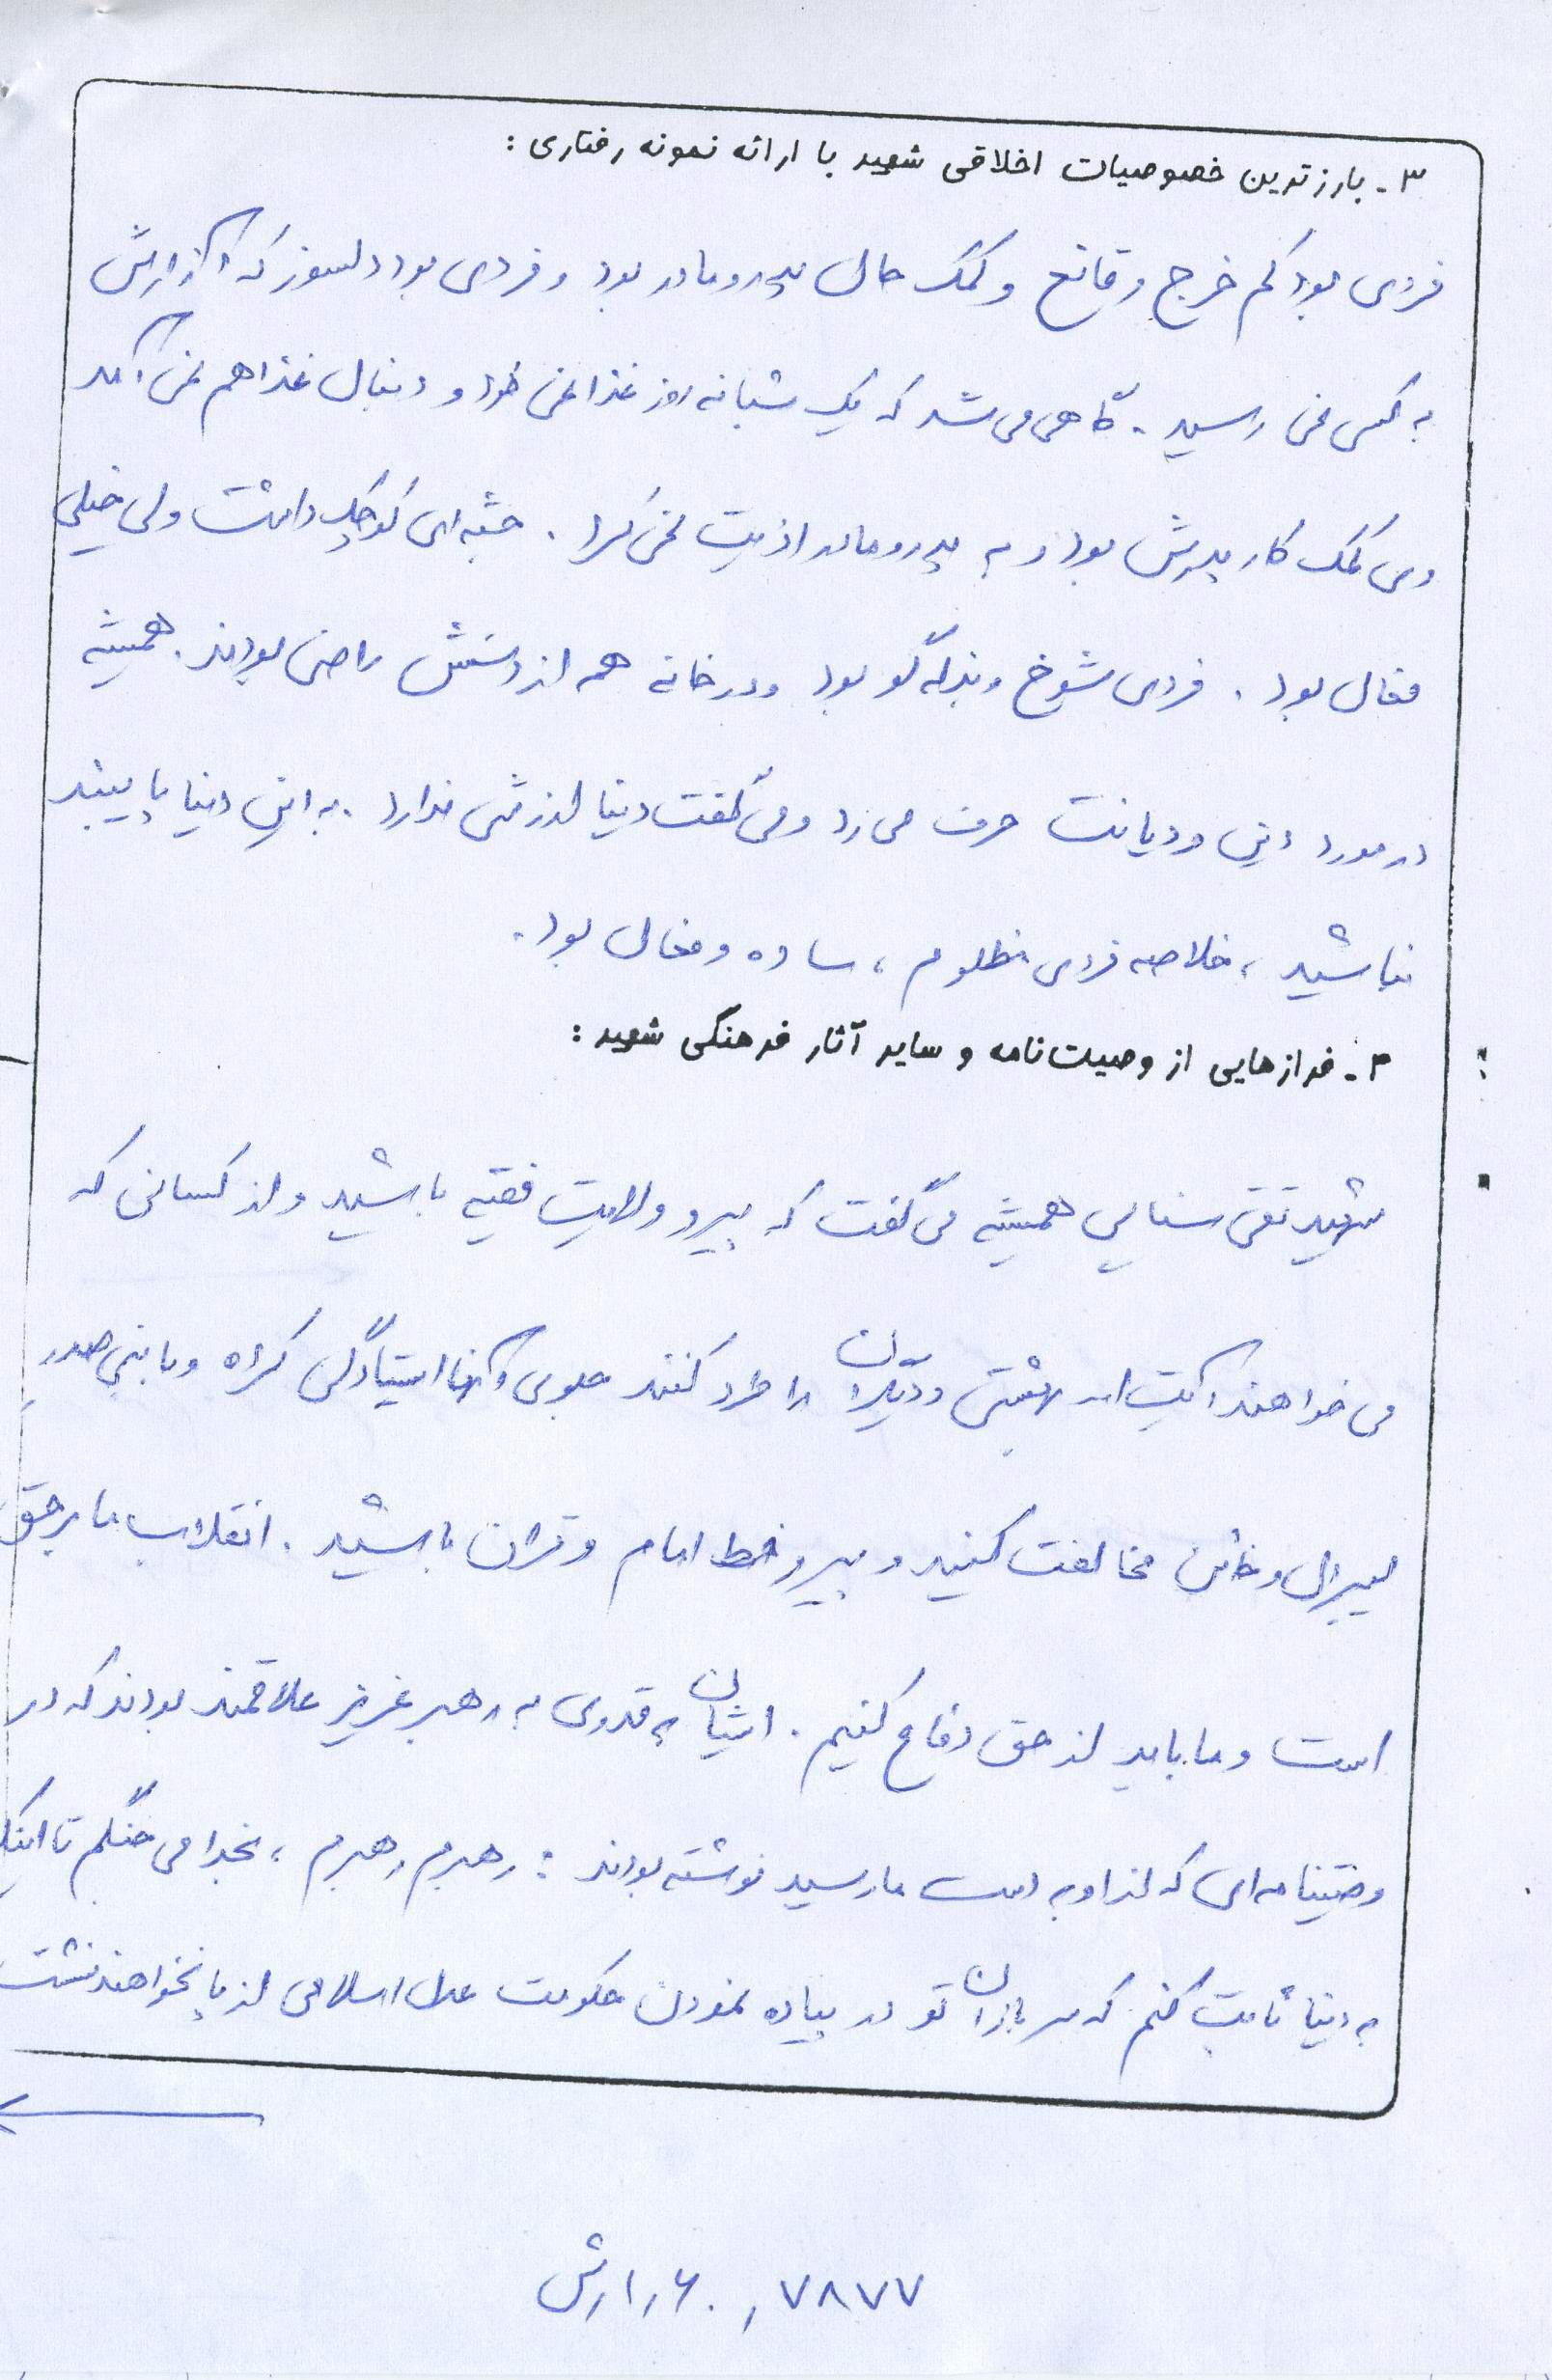 ۳- بارزترین خصوصیات اخلاقی شهید با ارائه نمونه رفتاری :
فردی بود کم خرج و قانع و کمک حال پدر و مادر بود و فردی بود دلسوز که آزارش
به کسی نمی رسید . گاهی می شد که یک شبانه روز غذا نمی خورد و دنبال غذا هم نمی آمد
وی کمک کار پدرش بود و به پدر و مادر اذیت نمی کرد . جثه ای کوچک داشت ولی خیلی
فعال بود . فردی شوخ و بذله گو بود و در خانه همه از دستش راضی بودند . همیشه
در مورد دین و دیانت حرف می زد و می گفت دنیا ارزشی ندارد . به این دنیا پایبند
نباشید ، خلاصه فردی مظلوم ، ساده و فعال بود .
۴- فرازهایی از وصیت‌نامه و سایر آثار فرهنگی شهید :
شهید تقی سنایی همیشه می گفت که پیرو ولایت فقیه باشید و از کسانی که
می خواهند آیت اله بهشتی و دیگران را طرد کنند جلوی آنها ایستادگی کرده و با بنی صدر
لیبرال و خائن مخالفت کنید و پیرو خط امام و قران باشید . انقلاب ما بر حق
است و ما باید از حق دفاع کنیم . ایشان به قدری به رهبر عزیز علاقمند بودند که در
وصیتنامه ای که از او به دست ما رسید نوشته بودند : رهبرم رهبرم ، بخدا می جنگم تا اینکه
به دنیا ثابت کنم که سربازان تو در پیاده نمودن حکومت عدل اسلامی از پا نخواهند نشست
۷۸۷۷